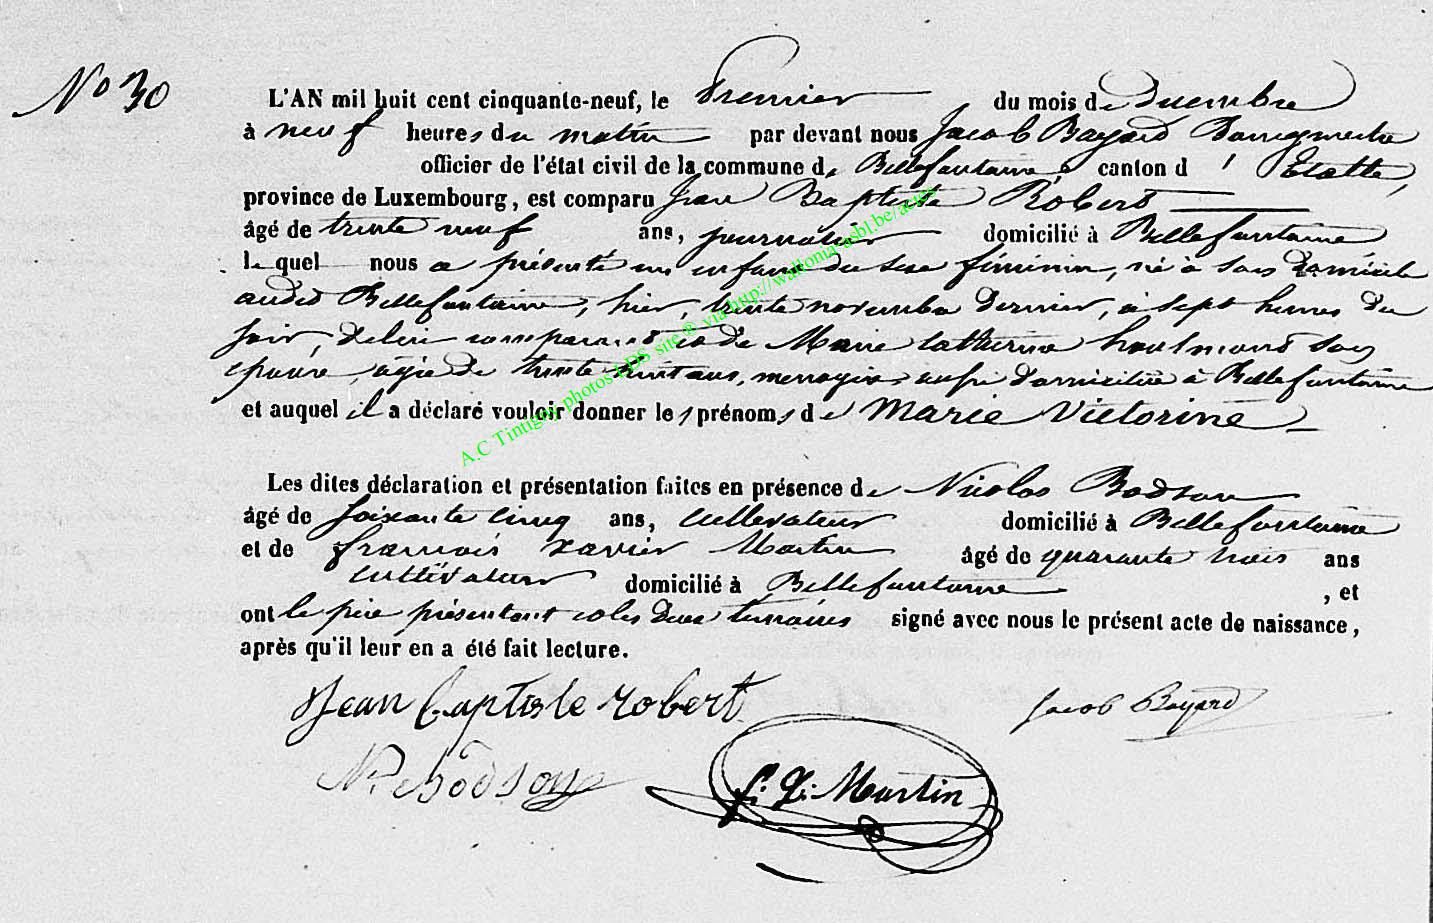 N° 30
L'AN mil huit cent cinquante-neuf, le Premier du mois de Decembre
à neuf heures du matin par devant nous Jacob Bayard Bourgmestre
officier de l'état civil de la commune de Bellefontaine, canton d'Etalle,
province de Luxembourg, est comparu Jean Baptiste Robert
âgé de trente neuf ans, journalier domicilié à Bellefontaine
lequel nous a présenté un enfant du sexe féminin, né à son domicile
audit Bellefontaine, hier, trente novembre dernier, à sept heures du
soir, de lui comparant et de Marie Catherine houlmont son
épouse, agée de trente ans, menagère aussi domiciliée à Bellefontaine
et auquel il a déclaré vouloir donner les prénoms de Marie Victorine
Les dites déclaration et présentation faites en présence de Nicolas Bodson
âgé de soixante cinq ans, cultivateur domicilié à Bellefontaine
et de françois xavier Martin âgé de quarante trois ans
cultivateur domicilié à Bellefontaine, et
ont le père présentant et les deux témoins signé avec nous le présent acte de naissance,
après qu'il leur en a été fait lecture.
Jean baptiste robert
Jacob Bayard
N. bodson
f. x. Martin
A.C Tintigny photos LDS site ® via http://wallonia-asbl.be/actes